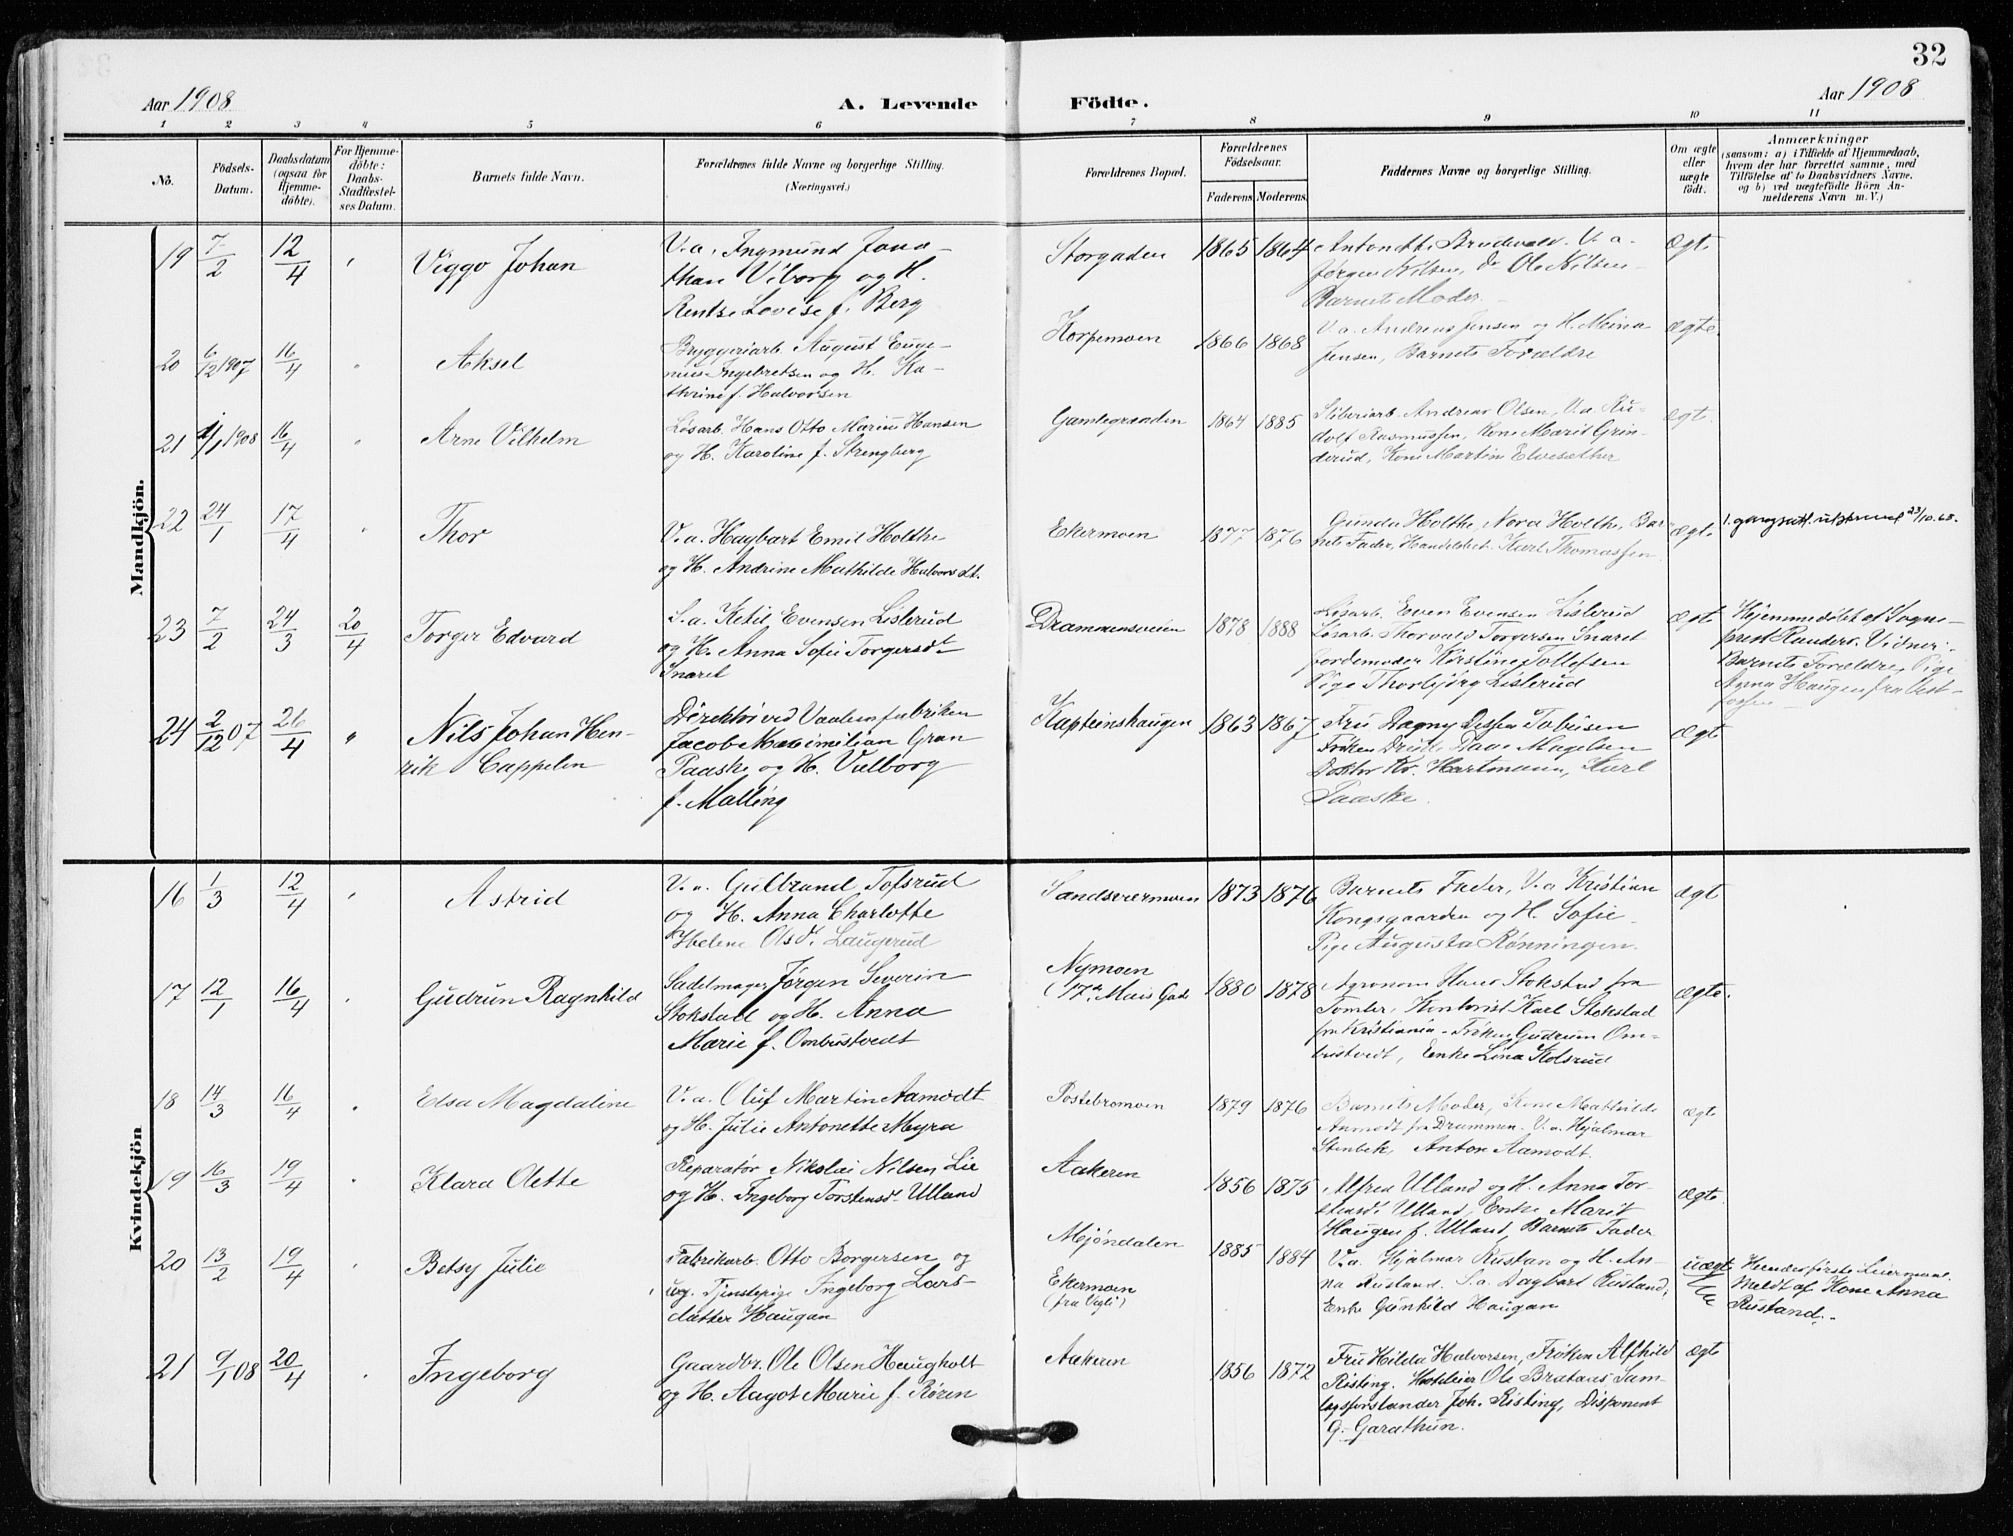 32
Aar 1908 A. Levende Födte. Aar 1908
1 2 3 4 5 6 7 8 9 10 11
No.
Födsels-
Datum.
Daabsdatum
(ogsaa for
Hjemme-
döbte).
For Hjemme-
döbte:
Daabs-
Stadfæstel-
ses Datum.
Barnets fulde Navn.
Forældrenes fulde Navne og borgerlige Stilling.
(Næringsvei.)
Forældrenes Bopæl.
Forældrenes
Födselsaar.
Faderens. Moderens.
Faddernes Navne og borgerlige Stilling.
Om ægte
eller
uægte
födt.
Anmærkninger
(saasom: a) i Tilfælde af Hjemmedaab,
hvem der har forrettet samme, med
Tilföielse af to Daabsvidners Navne,
og b) ved uægtefödte Börn An-
melderens Navn m. V.)
Mandkjön.
19 7/2 12/4 " Viggo Johan
V.a. Ingmund Jona-
than Viborg og H.
Rentse Lovise f. Berg
Storgaden 1865 1864
Anton Brudevold. V. a.
Jørgen Nilsen, do Ole Nilsen
Barnets Moder.
Ægte
20 6/12 1907 16/4 " Aksel
Bryggeriarb. August Euge-
nius Ingebretsen og H. Ka-
thrine f. Halvorsen
Korpemoen 1866 1868
V.a. Andreas Jensen og H. Meina
Jensen, Barnets Forældre
Ægte
21 1/1 1908 16/4 " Arne Vilhelm
Løsarb. Hans Otto Marius Hansen
og H. Karoline f. Strengberg
Gamlegraaden 1864 1885
Sliberiarb. Andreas Olsen, V.a. Ru-
dolf Rasmussen, Kone Marit Grin-
derud, Kone Martin Elvesæther
Ægt.
22 24/1 17/4 " Thor
V.a. Haybart Emil Holthe
og H. Andrine Mathilde Halvorsdt.
Ekermoen 1877 1876
Gunda Holthe, Nora Holthe, Bar-
nets Fader, Handelsbet. Karl Thomassen
Ægte
1. gangsatt. utskrevet 23/10.68.
23 7/2 24/3 20/4 Torger Edvard
S.a. Ketil Evensen Lislerud
og H. Anna Sofie Torgersdt
Snaret
Drammensveien 1878 1888
Løsarb. Even Evensen Lislerud
Løsarb. Thorvald Torgersen Snaret
Jordemoder Kirstine Tollefsen
Pige Thorbjørg Lislerud
Ægte
Hjemmedøbt af Sogne-
prest Randers. Vidner:
Barnets Forældre, Pige
Agna Haugen fra Vest-
fossen
24 2/12 07 26/4 " Nils Johan Hen-
rik Cappelen
Direktør ved Vaabenfabriken
Jacob Maximilian Gran
Paaske og H. Valborg
f. Malling
Kapteinshaugen 1863 1867
Fru Dagny Tobiesen
Frøken Magelsen
Doktor Kr. Hartmann, Karl
Paaske.
Ægt
Kvindekjön
16 1/3 12/4 " Astrid
V.a. Gulbrand Tofsrud
og H. Anna Charlotte
Helene Olsdt. Laugerud
Sandsværmoen 1873 1876
Barnets Fader, V.a Kristian
Kongsgaarden og H. Sofie
Pige Augusta Rønningen.
Ægt
17 12/1 16/4 " Gudrun Ragnhild
Sadelmager Jørgen Severin
Stokstad og H. Anna
Marie f. Ombustvedt
Nymoen
(17de Mais Gade 1880 1878
Agronom Hans Stokstad fra
Tomter, Kontorist Karl Stokstad
fra Kristiania - Frøken Gudrun Om-
bustvedt, Enke Lina Kolsrud
Ægte.
18 14/3 16/4 " Elsa Magdaline
V.a. Oluf Martin Aamodt
og H. Julie Antonette Myra
Postebromoen 1879 1876
Barnets Moder, Kone Mathilde
Aamodt fra Drammen. V.a. Hjalmar
Stenbek, Anton Aamodt.
Ægte
19 16/3 19/4 " Klara Olette
Reparatør Nikolai Nilsen Lie
og H. Ingeborg Torstensdt. Ulland
Aakeren 1856 1875
Alfred Ulland og H. Anna Tor-
stensdt Ulland, Enke Marit
Haugen f. Ulland, Barnets Fader
Ægte.
20 13/2 19/4 " Betsy Julie
Fabrikarb. Otto Borgersen og
ug. Tjenstepige Ingeborg Lars-
datter Haugan
Mjøndalen
Ekermoen
(fra Vegli) 1885 1884
V.a. Hjalmar Rustan og H. An-
na Rustand. S.a. Dagbart Rustand,
Enke Gunhild Haugan
uægte
Hendes første Leiermaal.
Meldt af Kone Anna
Rustand.
21 9/1 08 20/4 " Ingeborg
Gaardbr. Ole Olsen Haugholt
og H. Aagot Marie f. Røren
Aakeren 1856 1872
Fru Hilda Halvorsen, Frøken Alfhild
Risting, Hoteleier Ole Brataas, Sam-
lagsforstander Joh. Risting, Disponent
G. Garathun.
Ægte